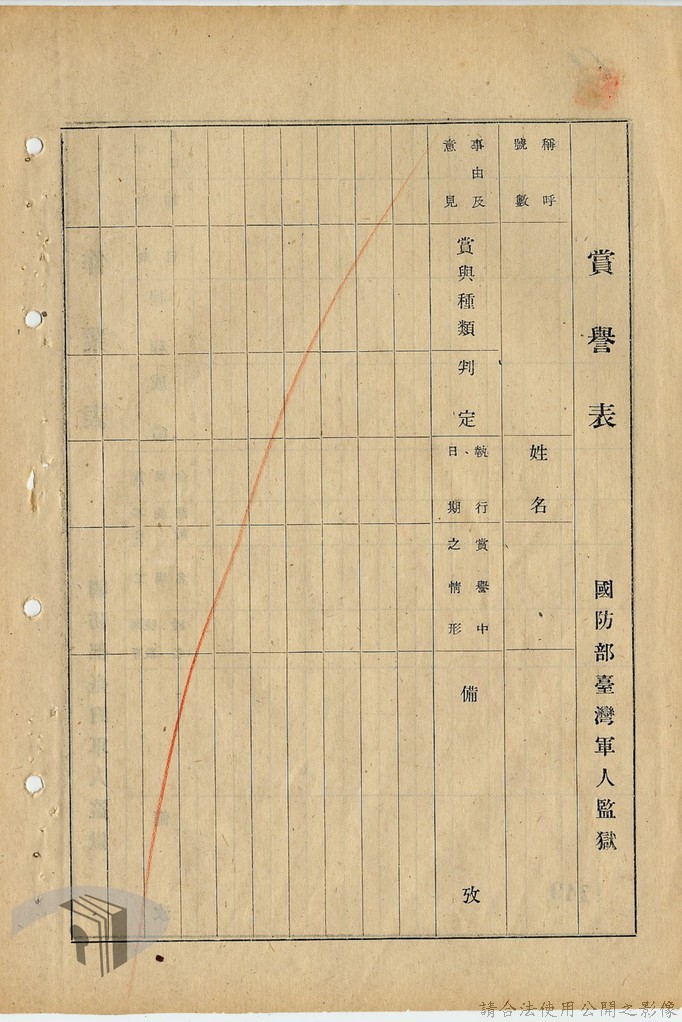 賞譽表
國防部臺灣軍人監獄
稱呼
號數
姓名
事由及
意見
賞與種類
判定
執行
日、期
賞譽中
之情形
備攷
請合法使用公開之影像